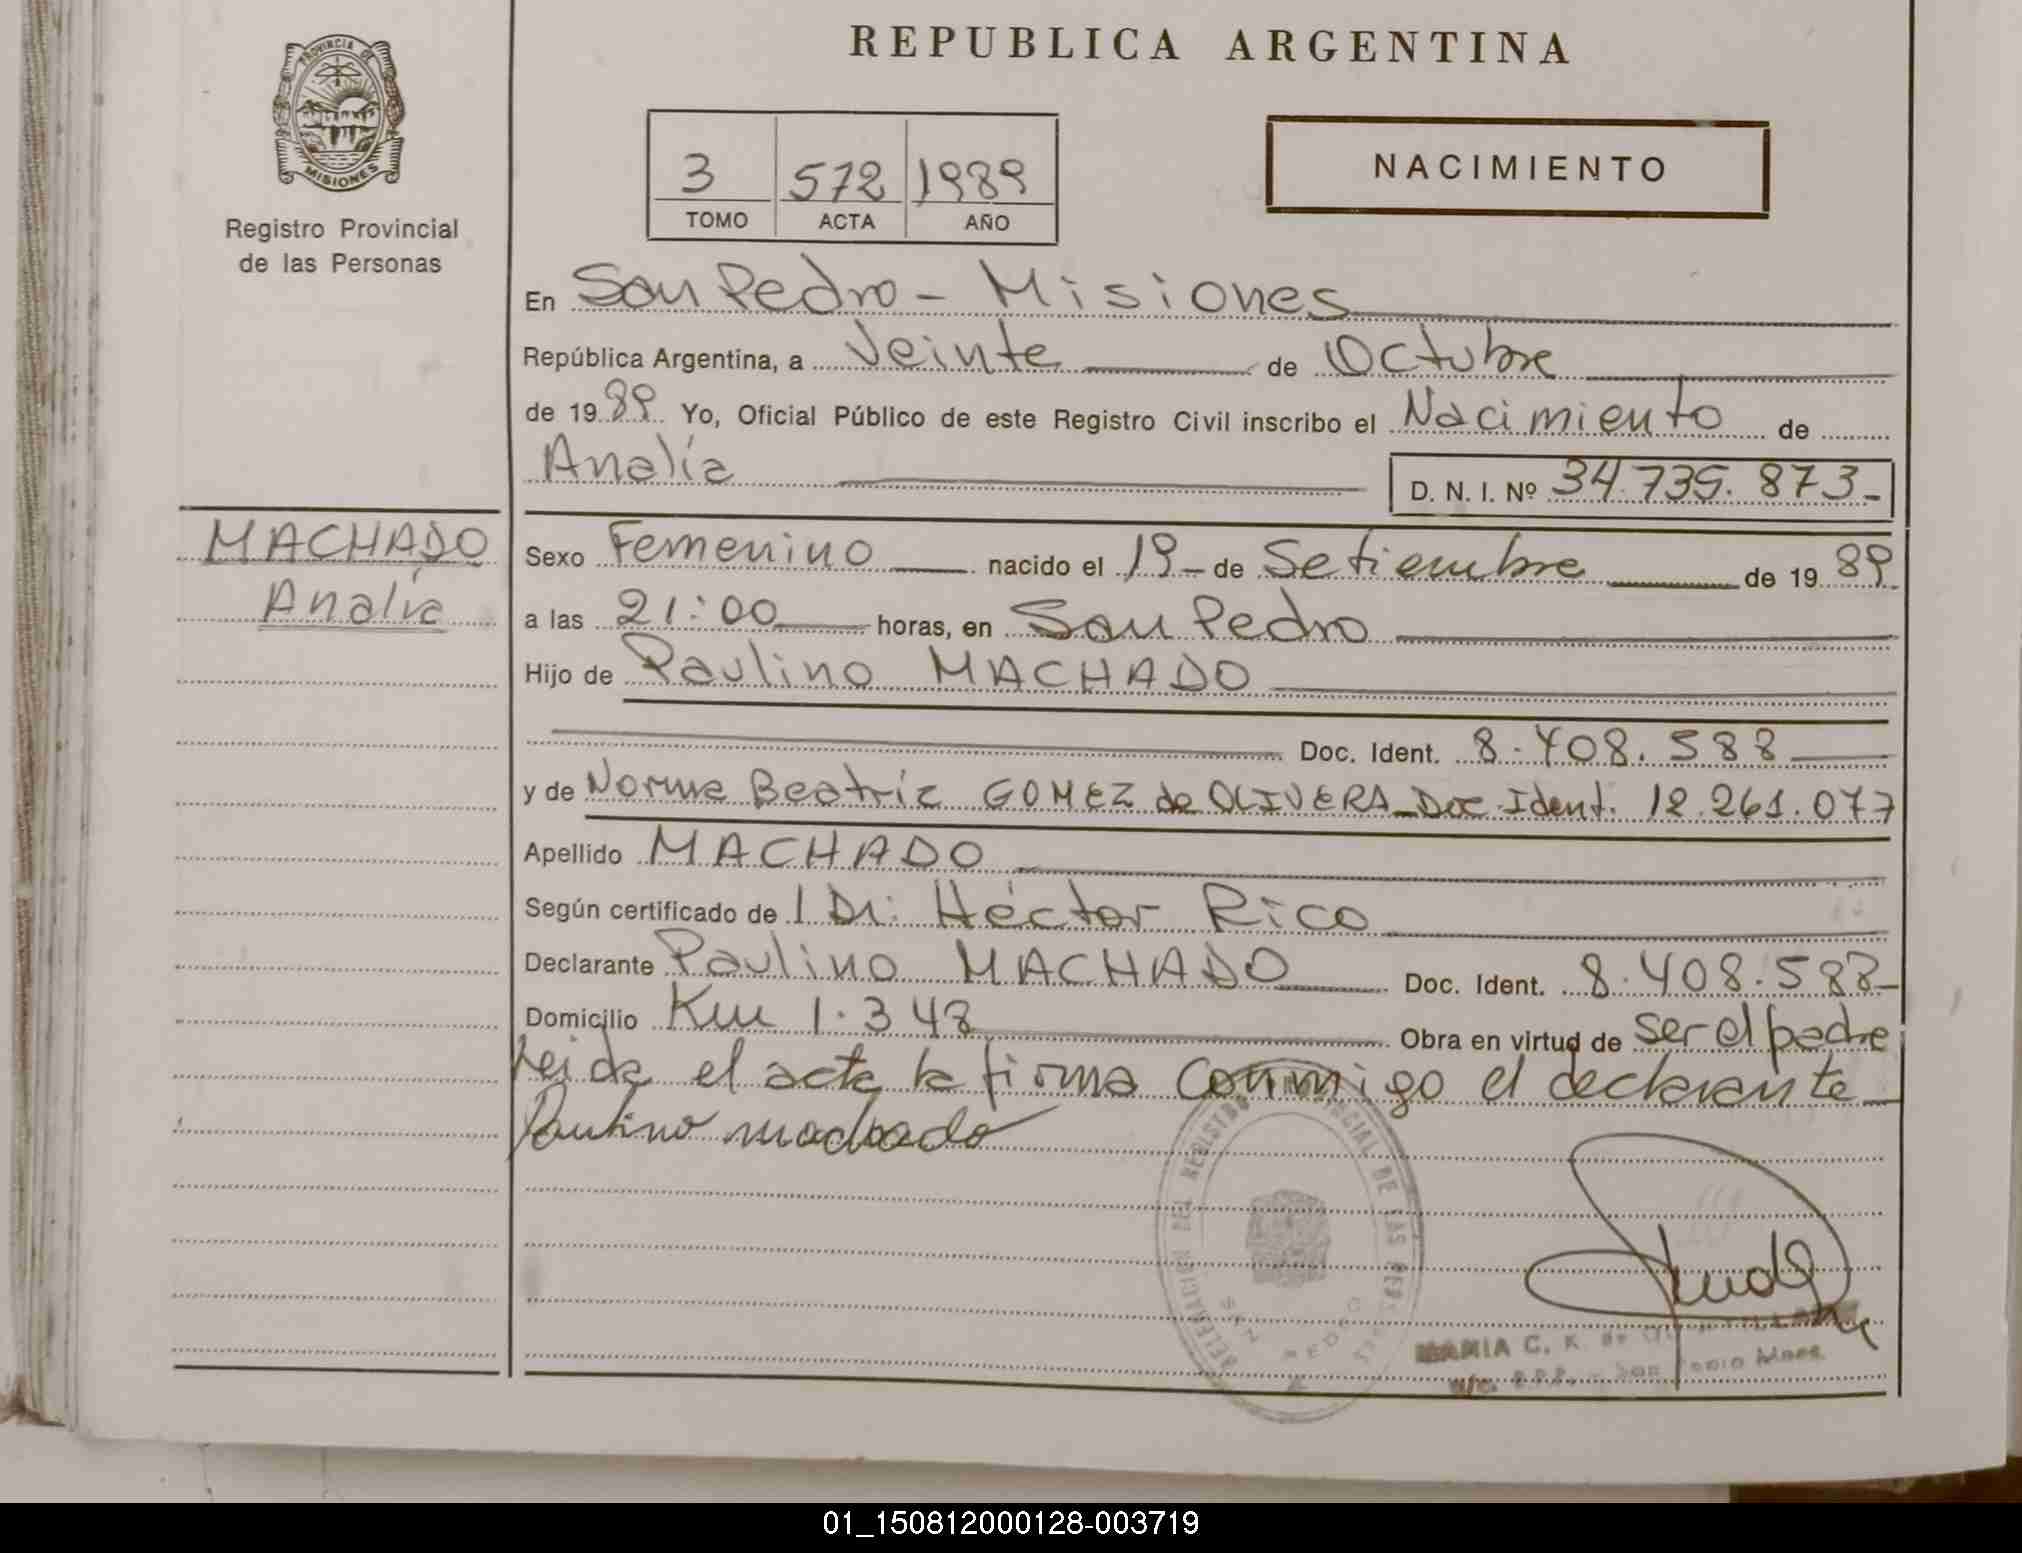 REPUBLICA ARGENTINA
PROVINCIA DE MISIONES
Registro Provincial
de las Personas
3 572 1989
TOMO ACTA AÑO
NACIMIENTO
En San Pedro - Misiones
República Argentina, a Veinte de Octubre
de 1989 Yo, Oficial Público de este Registro Civil inscribo el Nacimiento de
Analía D. N. I. Nº 34.735.873-
MACHADO
Analía
Sexo Femenino nacido el 19 de Setiembre de 1989
a las 21:00 horas, en San Pedro
Hijo de Paulino MACHADO
Doc. Ident. 8.408.588
y de Norma Beatríz GOMEZ de OLIVERA - Doc. Ident. 12.261.077
Apellido MACHADO
Según certificado de l Dr: Héctor Rico
Declarante Paulino MACHADO Doc. Ident. 8.408.588-
Domicilio Km 1.348 Obra en virtud de ser el padre
Leida el acta la firma conmigo el declarante
Paulino machado
DELEGACION DEL REGISTRO PROVINCIAL DE LAS PERSONAS
SAN PEDRO
MARIA C. K. de
R.P.P. - San Pedro Mnes.
01_150812000128-003719